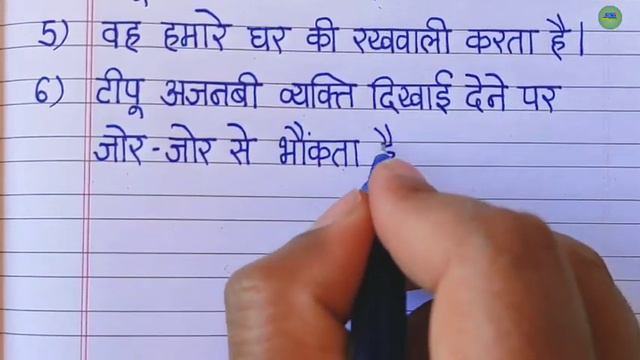 5) वह हमारे घर की रखवाली करता है।
6) टीपू अजनबी व्यक्ति दिखाई देने पर
जोर-जोर से भौंकता है